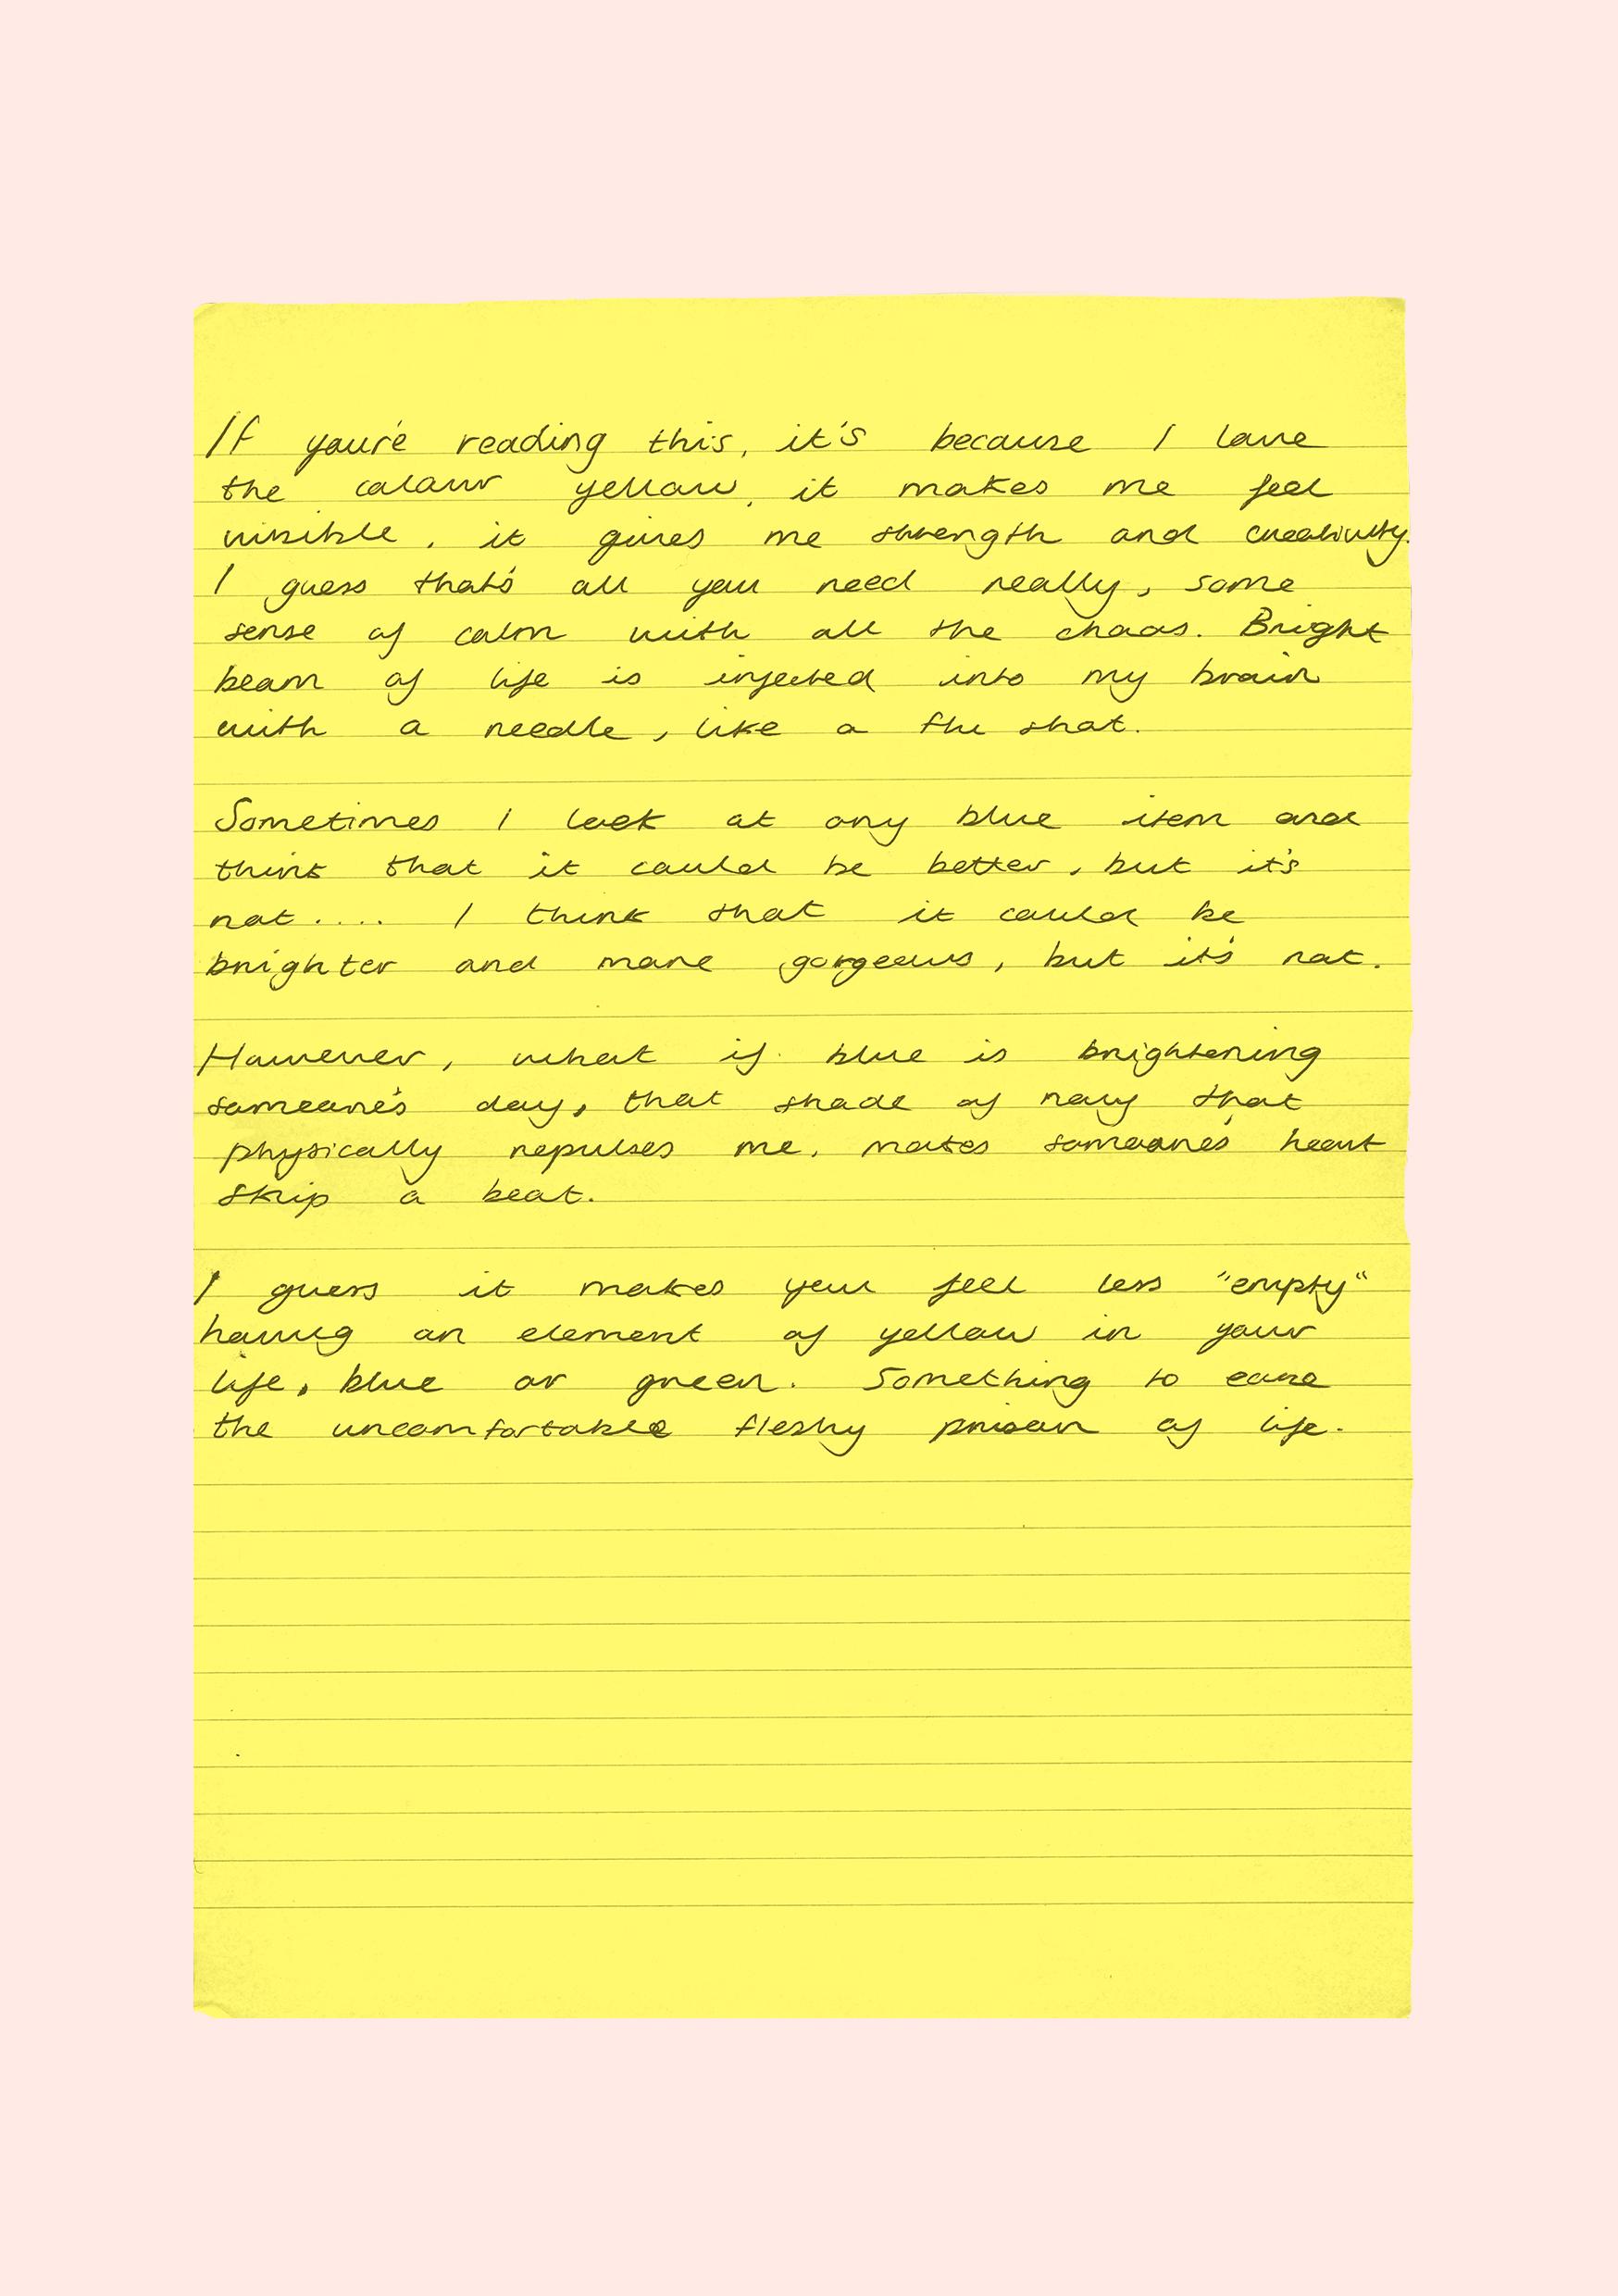 If you're reading this, it's because I love
the colour yellow, it makes me feel
visible, it gives me strength and creativity.
I guess that's all you need really, some
sense of calm with all the chaos. Bright
beam of life is injected into my brain
with a needle, like a flu shot.
Sometimes I look at any blue item and
think that it could be better, but it's
not.... I think that it could be
brighter and more gorgeous, but it's not.
However, what if blue is brightening
someone's day, that shade of navy that
physically repulses me, makes someone's heart
skip a beat.
I guess it makes you feel less "empty"
having an element of yellow in your
life, blue or green. Something to ease
the uncomfortable fleshy prison of life.